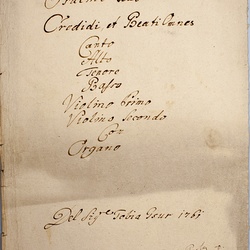 Credidi, et Beati Omnes
Canto
Alto
Tenore
Basso
Violino Primo
Violino Secondo
Con
Organo
Del Sig: Tobia Gsur 1761